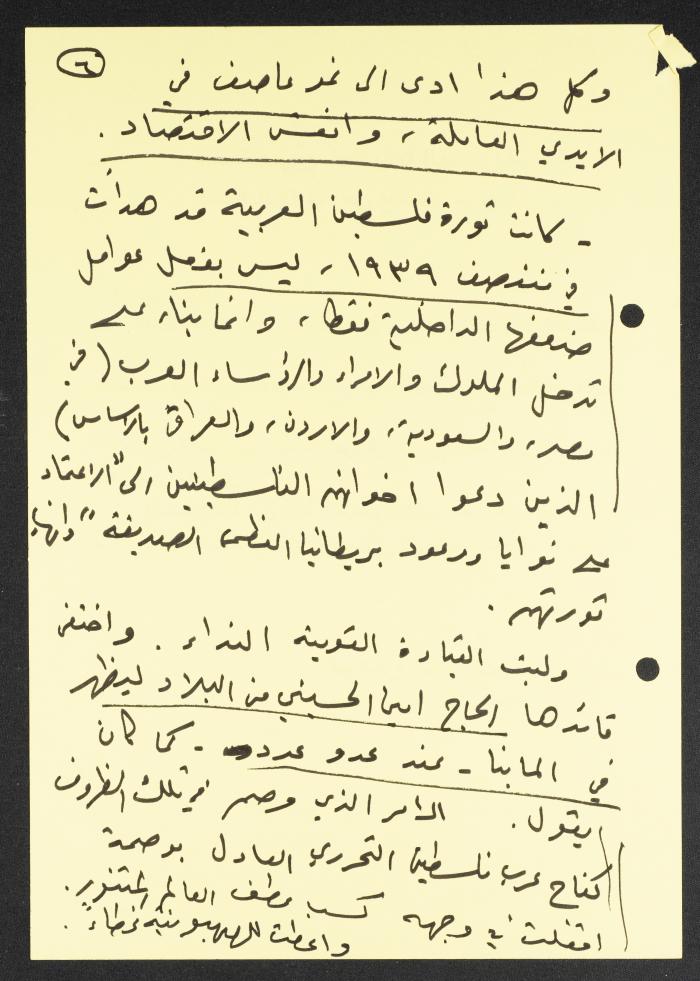 ٦
وكل هذا ادى الى نمو عاصف في
الايدي العاملة، وانعش الاقتصاد.
- كانت ثورة فلسطين العربية قد هدأت
في منتصف ١٩٣٩، ليس بفعل عوامل
ضعفها الداخلية فقط، وانما بناء على
تدخل الملوك والامراء والرؤساء العرب (في
مصر، والسعودية، والاردن، والعراق بالاساس)
الذين دعوا اخوانهم الفلسطينيين الى "الاعتماد
على نوايا ووعود بريطانيا العظمى الصديقة" وانهاء
ثورتهم.
ولبت القيادة القومية النداء. واختفى
قائدها الحاج امين الحسيني من البلاد ليظهر
في المانيا - عند عدو عدوه - كما كان
يقول. الامر الذي وصم في تلك الظروف
كفاح عرب فلسطين التحرري العادل بوصمة
اقفلت في وجهه كسب عطف العالم المتنور.
واعطت للصهيونية غطاء.